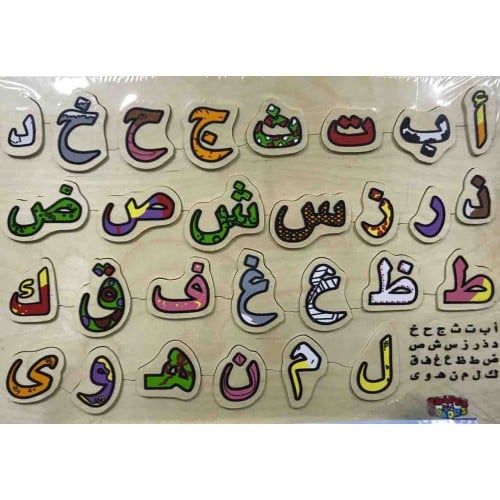 أ ب ت ث ج ح خ د
ذ ر ز س ش ص ض
ط ظ ع غ ف ق ك
ل م ن هـ و ى
أ ب ت ث ج ح خ
د ذ ر ز س ش ص
ض ط ظ ع غ ف ق
ك ل م ن هـ و ى